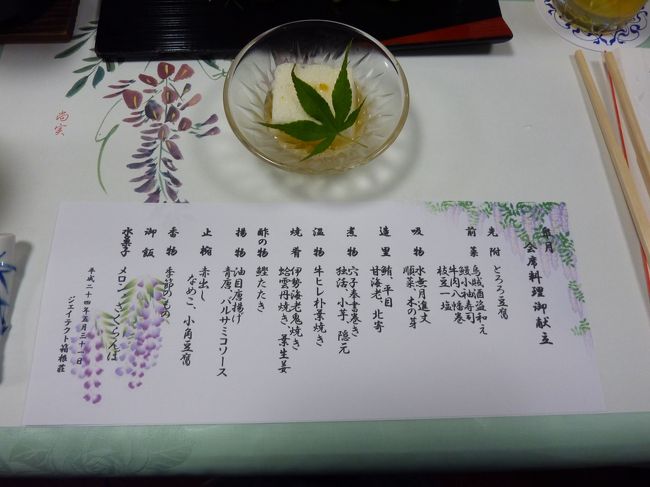 皐月
会席料理御献立
先附 とろろ豆腐
前菜 烏賊酒盗和え
鰻小袖寿司
牛肉八幡巻
枝豆一塩
吸物 水無月進丈
順菜、木の芽
造里 鮪、平目
甘海老、北寄
煮物 穴子奉書巻き
独活、小芋、隠元
温物 牛ヒレ朴葉焼き
焼肴 伊勢海老鬼焼き
蛤雲丹焼き、葉生姜
酢の物 鰹たたき
揚物 油目唐揚げ
青唐、バルサミコソース
止椀 赤出し
なめこ、小角豆腐
香物 季節のもの
御飯
水菓子 メロン、さくらんぼ
平成二十四年五月三十一日
ジェイテクト箱根荘
尚実